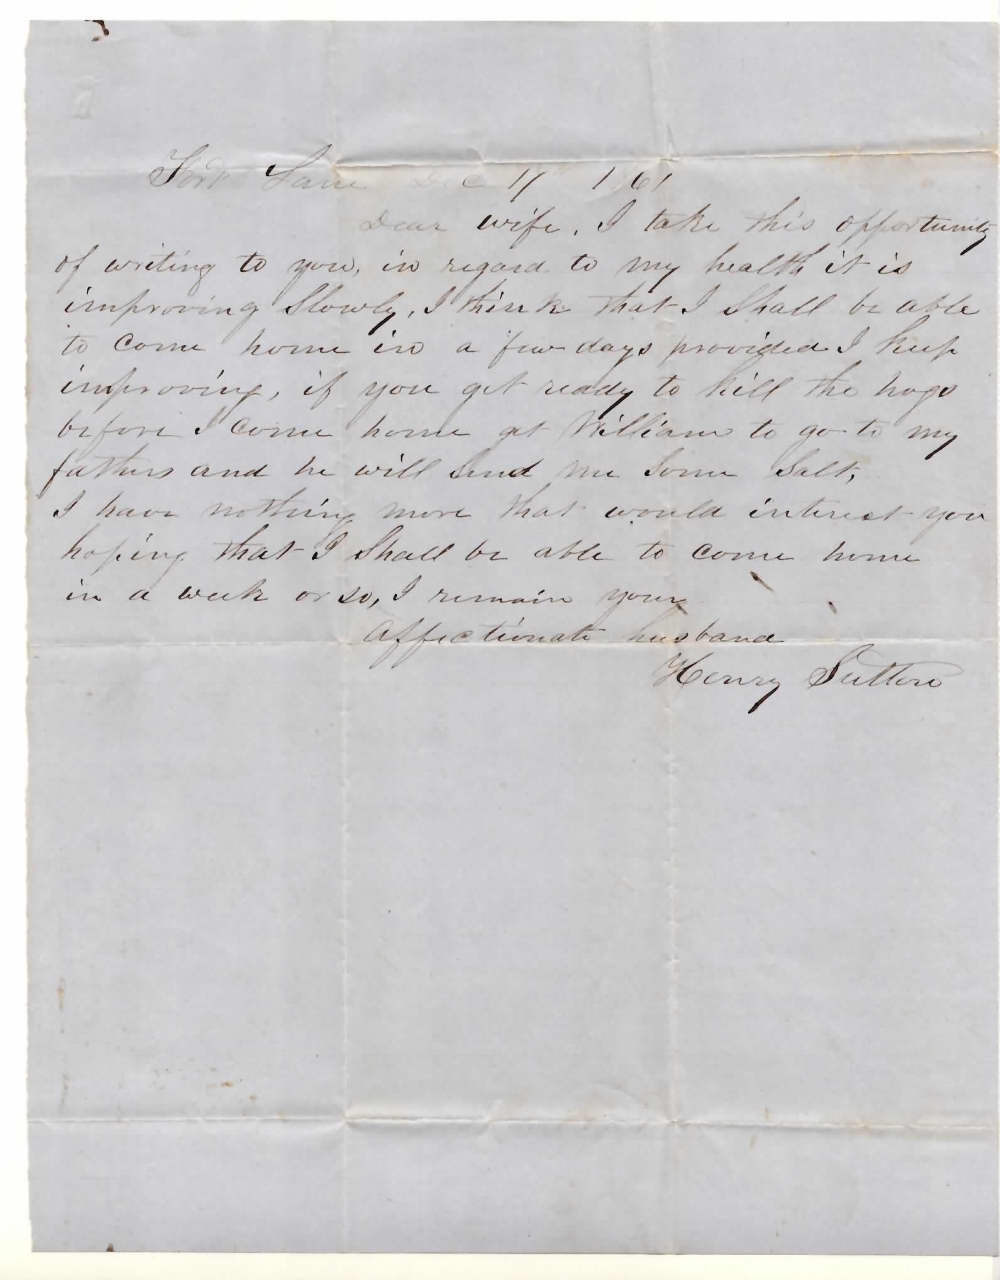 Fort Lane Dec 17 1861
Dear wife, I take this opportunity
of writing to you, in regard to my health it is
improving slowly, I think that I shall be able
to come home in a few days provided I keep
improving, if you get ready to kill the hogs
before I come home get William to go to my
fathers and he will send me some salt,
I have nothing more that would interest you
hoping that I shall be able to come home
in a week or so, I remain your
affectionate husband
Henry Sutton